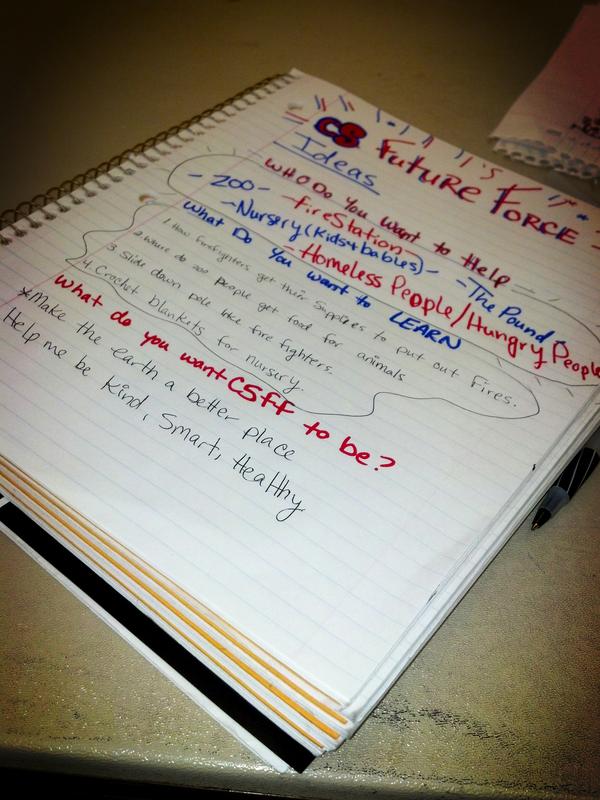 CS Future Force
Ideas
WHO Do You Want to Help
- ZOO - - Fire Station -
- Nursery (Kids + babies) - - The Pound -
- Homeless People/Hungry People
What Do You want to LEARN
1. How firefighters get their Supplies to put out Fires.
2. Where do zoo people get food for animals
3. Slide down pole like fire fighters.
4. Crochet blankets for nursery.
What do you want CSFF to be?
*Make the earth a better place
Help me be Kind, Smart, Healthy